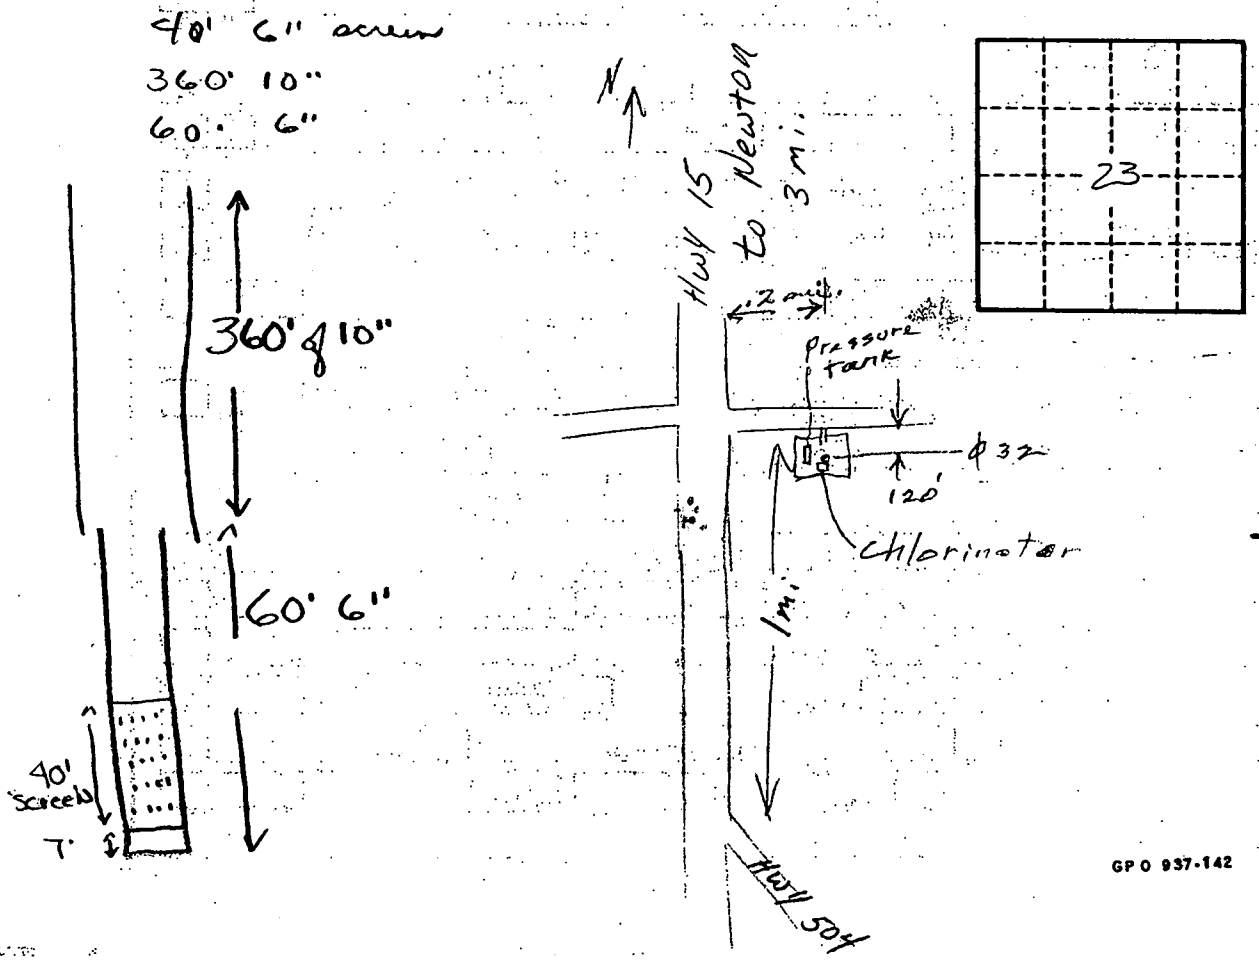 40' 6" screen
360' 10"
60' 6"
360' of 10"
60' 6"
40'
screen
7'
N
Hwy 15
to Newton
3 mi.
.2 mi.
Pressure
tank
φ 32
120'
Chlorinator
1 mi
Hwy 504
23
GPO 937-142